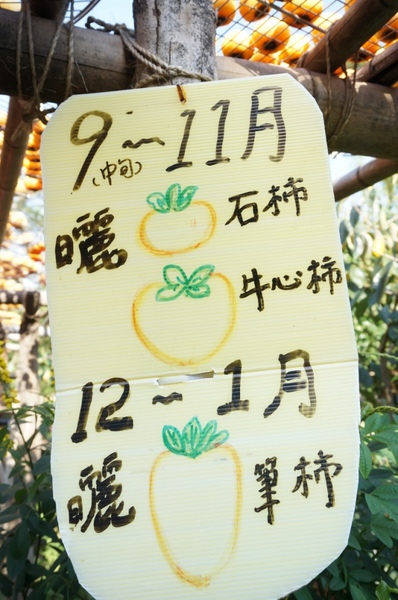 9~11月
(中旬)
曬 石柿
牛心柿
12~1月
曬 筆柿